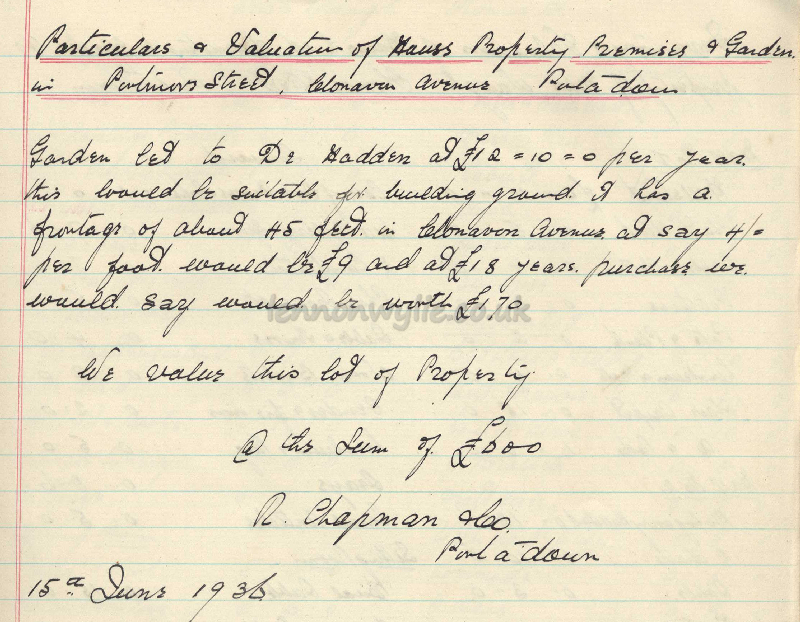 Particulars & Valuation of House Property Premises & Garden
in Portmore Street, Clonavon Avenue Portadown
Garden let to Dr Hadden at £12=10=0 per year.
this would be suitable for building ground. it has a
frontage of about 45 feet. in Clonavon Avenue at say 4/=
per foot. would be £9 and at £18 years. purchase we.
would. say would. be worth £170
lennonwylie.co.uk
We value this lot of Property
@ the Sum of £600
R. Chapman & Co.
Portadown
15th June 1936